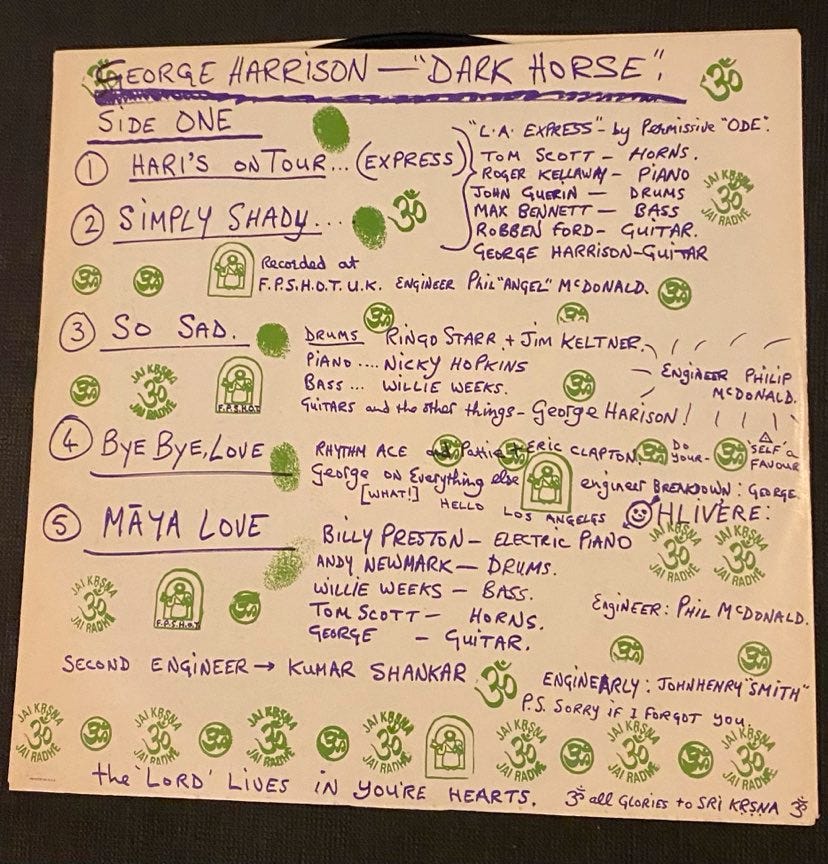 GEORGE HARRISON — "DARK HORSE".
ॐ
SIDE ONE
① HARI'S ON TOUR... (EXPRESS)
"L.A. EXPRESS" - by Permissive "ODE".
TOM SCOTT — HORNS.
ROGER KELLAWAY — PIANO
JOHN GUERIN — DRUMS
MAX BENNETT — BASS
ROBBEN FORD - GUITAR.
GEORGE HARRISON - GUITAR
JAI KRSNA
ॐ
JAI RADHE
② SIMPLY SHADY...
ॐ
Recorded at
F.P.S.H.O.T. U.K. ENGINEER PHIL "ANGEL" McDONALD.
③ SO SAD.
DRUMS RINGO STARR + JIM KELTNER.
PIANO .... NICKY HOPKINS
BASS ... WILLIE WEEKS.
GUITARS and the other things - George HARISON!
ENGINEER PHILIP
McDONALD.
JAI KRSNA
ॐ
JAI RADHE
F.P.S.H.O.T
④ BYE BYE, LOVE
RHYTHM ACE and Pattie + ERIC CLAPTON.
DO
YOUR-
'SELF' a
FAVOUR
George on Everything else
[WHAT!]
engineer BREAKDOWN: GEORGE.
HELLO LOS ANGELES
OHLIVERE:
⑤ MĀYA LOVE
BILLY PRESTON — ELECTRIC PIANO
ANDY NEWMARK — DRUMS.
WILLIE WEEKS — BASS.
TOM SCOTT — HORNS.
GEORGE — GUITAR.
JAI KRSNA JAI KRSNA
ॐ ॐ
JAI RADHE JAI RADHE
ENGINEER: PHIL McDONALD.
JAI KRSNA
ॐ
JAI RADHE
F.P.S.H.O.T
SECOND ENGINEER → KUMAR SHANKAR
ॐ
ENGINEARLY: JOHNHENRY "SMITH"
P.S. SORRY IF I FORGOT YOU.
JAI KRSNA JAI KRSNA JAI KRSNA JAI KRSNA JAI KRSNA JAI KRSNA JAI KRSNA
ॐ ॐ ॐ ॐ ॐ ॐ ॐ
JAI RADHE JAI RADHE JAI RADHE JAI RADHE JAI RADHE JAI RADHE JAI RADHE
the 'LORD' LIVES IN YOU'RE HEARTS.
ॐ all GLORIES to SRI KRSNA ॐ